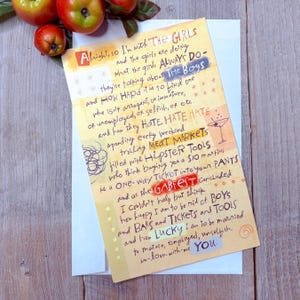 Alright, so I'm with THE GIRLS
and the girls are doing
what the girls ALWAYS DO -
they're talking about THE BOYS
and HOW HARD it is to find one
who isn't arrogant, or immature,
or unemployed, or selfish, or etc.
and how they HATE HATE HATE
spending every weekend
trolling MEAT MARKETS
filled with HIPSTER TOOLS
who think buying you a $10 martini
is a ONE-WAY TICKET into your PANTS
and as the GABFEST concluded
I couldn't help but think
how happy I am to be rid of BOYS
and BARS and TICKETS and TOOLS
and how LUCKY I am to be married
to mature, employed, unselfish,
in-love-with-me YOU.